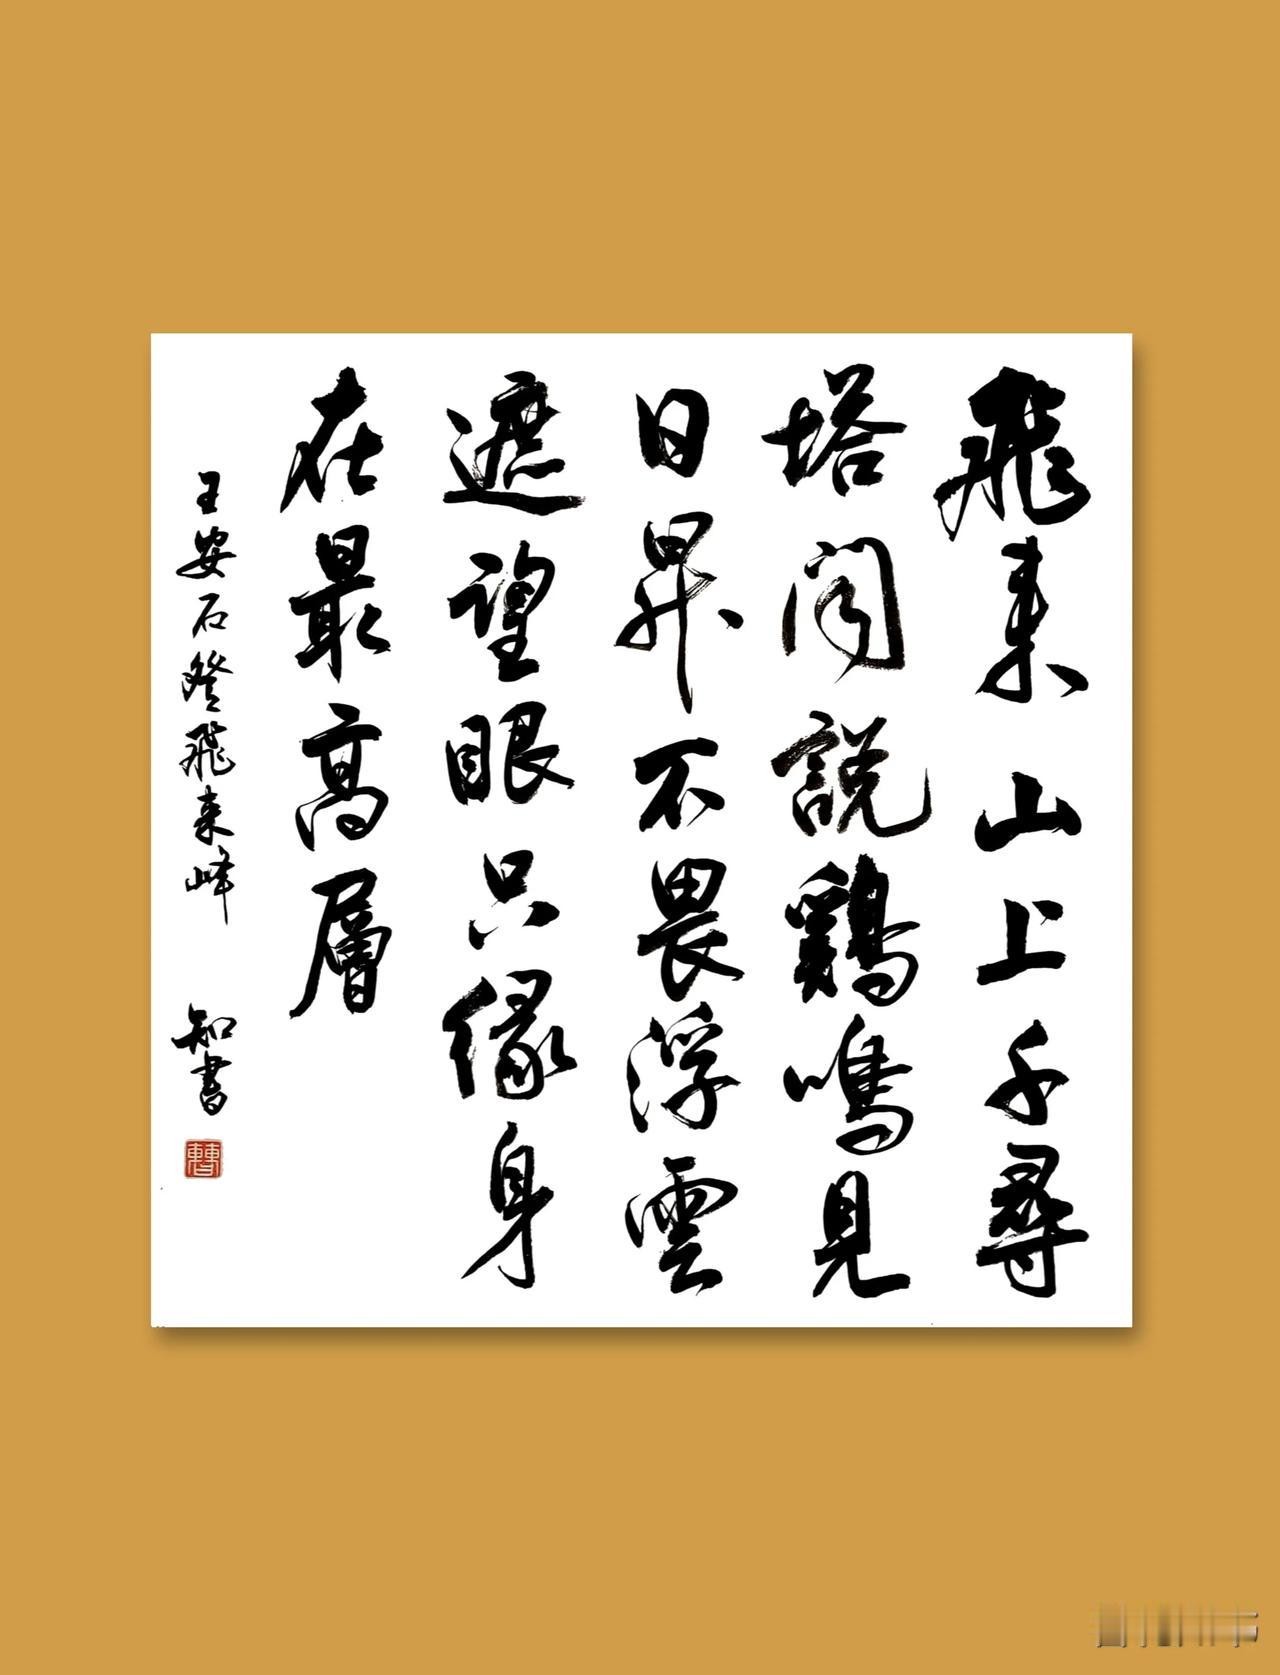 飛来山上千尋
塔聞説鷄鳴見
日昇不畏浮雲
遮望眼只緣身
在最高層
王安石登飛来峰 知書